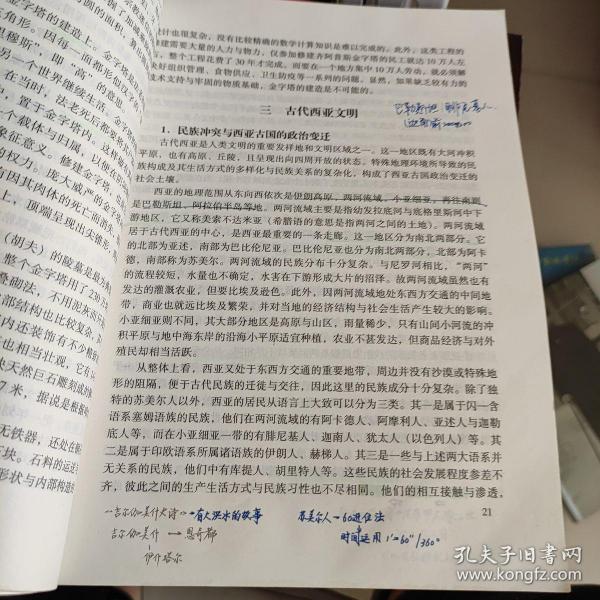 金字塔的建造上。
角形。因每一
塔穆斯”，即“高”的意思。
在当时，法老死后都要
中，置于金字塔内。
个载体与归属，以伸
象征意义。修建金字塔，
权力。庞大威严的金
因其肉体的死亡而消失
，顶端呈现出尖锥形
（胡夫）的陵墓是分
整个金字塔用了230万
叠砌法，不用泥灰
部结构也比较复杂，
内还装饰有不少雕
也相当壮观，它有
块天然巨石雕刻成的
7米，据说是根据
无铁器，还处在
块。石料的运送
形状与内部构造
设计也很复杂，没有比较精确的数学计算知识是难以完成的。此外，这类工程的
修建需要大量的人力与物力，仅参加修建齐阿普斯金字塔的民工就达10万人左
右，整个工程花费了30年才完成。而要在一个地方集中10万人劳动，就必须解
决好组织管理、食物供应、卫生防疫等一系列的问题。显然，如果缺乏较有力的
技术支持与牢固的物质基础，金字塔的建造是不可能的。
三 古代西亚文明
巴勒斯坦
1. 民族冲突与西亚古国的政治变迁
古代西亚是人类文明的重要发祥地和文明区域之一。这一地区既有大河冲积
平原，也有高原、丘陵，且呈现出向四周开放的状态。特殊地理环境所导致的民
族构成及其生活方式的多样化与民族关系的复杂化，构成了西亚古国政治变迁的
社会土壤。
西亚的地理范围从东向西依次是伊朗高原、两河流域、小亚细亚，再往南则
是巴勒斯坦、阿拉伯半岛等地。两河流域主要是指幼发拉底河与底格里斯河中下
游地区，它又称美索不达米亚（希腊语的意思是指两河之间的土地）。两河流域
居于古代西亚的中心，是西亚最重要的一条走廊。这一地区分为南北两部分。它
的北部为亚述，南部为巴比伦尼亚。巴比伦尼亚也分为南北两部分，北部为阿卡
德，南部称为苏美尔。两河流域的民族分布十分复杂。与尼罗河相比，“两河”
的流程较短，水量也不确定，水害在下游形成大片的沼泽。故两河流域虽然也有
发达的灌溉农业，但要比埃及逊色。此外，因两河流域地处东方交通的中间地
带，商业也就远比埃及繁荣，并对当地的经济结构与社会生活产生较大的影响。
小亚细亚则不同，其大部分地区是高原与山区，雨量稀少，只有山间小河流的冲
积平原与地中海东岸的沿海小平原适宜种植，农业不甚发达，但商品经济与对外
殖民却相当活跃。
从整体上看，西亚又处于东西方交通的重要地带，周边并没有沙漠或特殊地
形的阻隔，便于古代民族的迁徙与交往，因此这里的民族成分十分复杂。除了独
特的苏美尔人以外，西亚的居民从语言上大致可以分为三类。其一是属于闪—含
语系塞姆语族的民族，他们在两河流域的有阿卡德人、阿摩利人、亚述人与迦勒
底人等，而在小亚细亚一带的有腓尼基人、迦南人、犹太人（以色列人）等。其
二是属于印欧语系所属诸语族的伊朗人、赫梯人。其三是一些与上述两大语系并
无关系的民族，他们中有库提人、胡里特人等。这些民族的社会发展程度参差不
齐，彼此之间的生产生活方式与民族习性也不尽相同。他们的相互接触与渗透，
21
《吉尔伽美什史诗》→有人洪水的故事
吉尔伽美什→恩奇都
苏美尔人→60进位法
时间运用 1'=60"/360°
孔夫子旧书网
www.kongfz.com